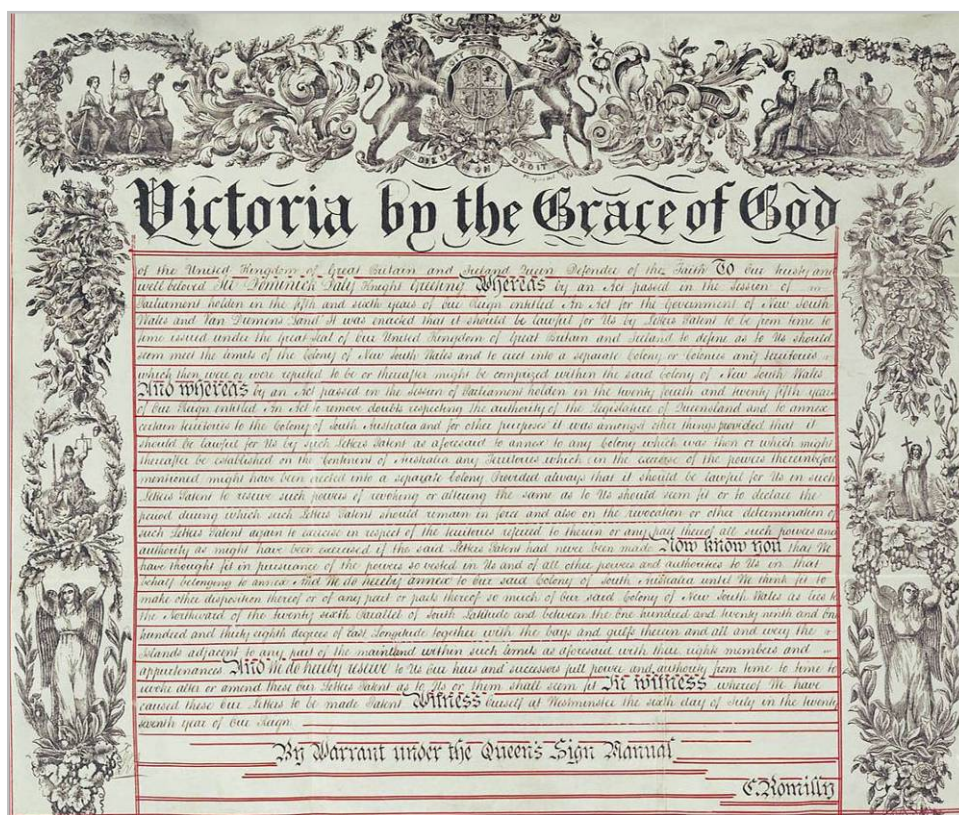 DIEU ET MON DROIT
Victoria by the Grace of God
of the United Kingdom of Great Britain and Ireland Queen Defender of the Faith To Our trusty and
well beloved Sir Dominick Daly Knight Greeting Whereas by an Act passed in the Session of
Parliament holden in the fifth and sixth years of Our Reign entitled An Act for the Government of New South
Wales and Van Diemens Land It was enacted that it should be lawful for Us by Letters Patent to be from time to
time issued under the Great Seal of Our United Kingdom of Great Britain and Ireland to define as to Us should
seem meet the limits of the Colony of New South Wales and to erect into a separate Colony or Colonies any territories
which then were or were reputed to be or thereafter might be comprized within the said Colony of New South Wales
And whereas by an Act passed in the Session of Parliament holden in the twenty fourth and twenty fifth years
of Our Reign entitled An Act to remove doubts respecting the authority of the Legislature of Queensland and to annex
certain territories to the Colony of South Australia and for other purposes it was amongst other things provided that it
should be lawful for Us by such Letters Patent as aforesaid to annex to any Colony which was then or which might
thereafter be established on the Continent of Australia any Territories which (in the exercise of the powers thereinbefore
mentioned might have been erected into a separate Colony Provided always that it should be lawful for Us in such
Letters Patent to reserve such powers of revoking or altering the same as to Us should seem fit or to declare the
period during which such Letters Patent should remain in force and also on the revocation or other determination of
such Letters Patent again to exercise in respect of the territories referred to therein or any part thereof all such powers and
authority as might have been exercised if the said Letters Patent had never been made Now know you that We
have thought fit in pursuance of the powers so vested in Us and of all other powers and authorities to Us in that
behalf belonging to annex And We do hereby annex to Our said Colony of South Australia until We think fit to
make other disposition thereof or of any part or parts thereof so much of Our said Colony of New South Wales as lies to
the Northward of the twenty sixth Parallel of South Latitude and between the One hundred and twenty ninth and One
hundred and thirty eighth degrees of East Longitude together with the bays and gulfs therein and all and every the
Islands adjacent to any part of the mainland within such limits as aforesaid with their rights members and
appurtenances And We do hereby reserve to Us Our heirs and successors full power and authority from time to time to
revoke alter or amend these Our Letters Patent as to Us or them shall seem fit In witness whereof We have
caused these Our Letters to be made Patent Witness Ourself at Westminster the sixth day of July in the twenty
seventh year of Our Reign
By Warrant under the Queen's Sign Manual
C. Romilly